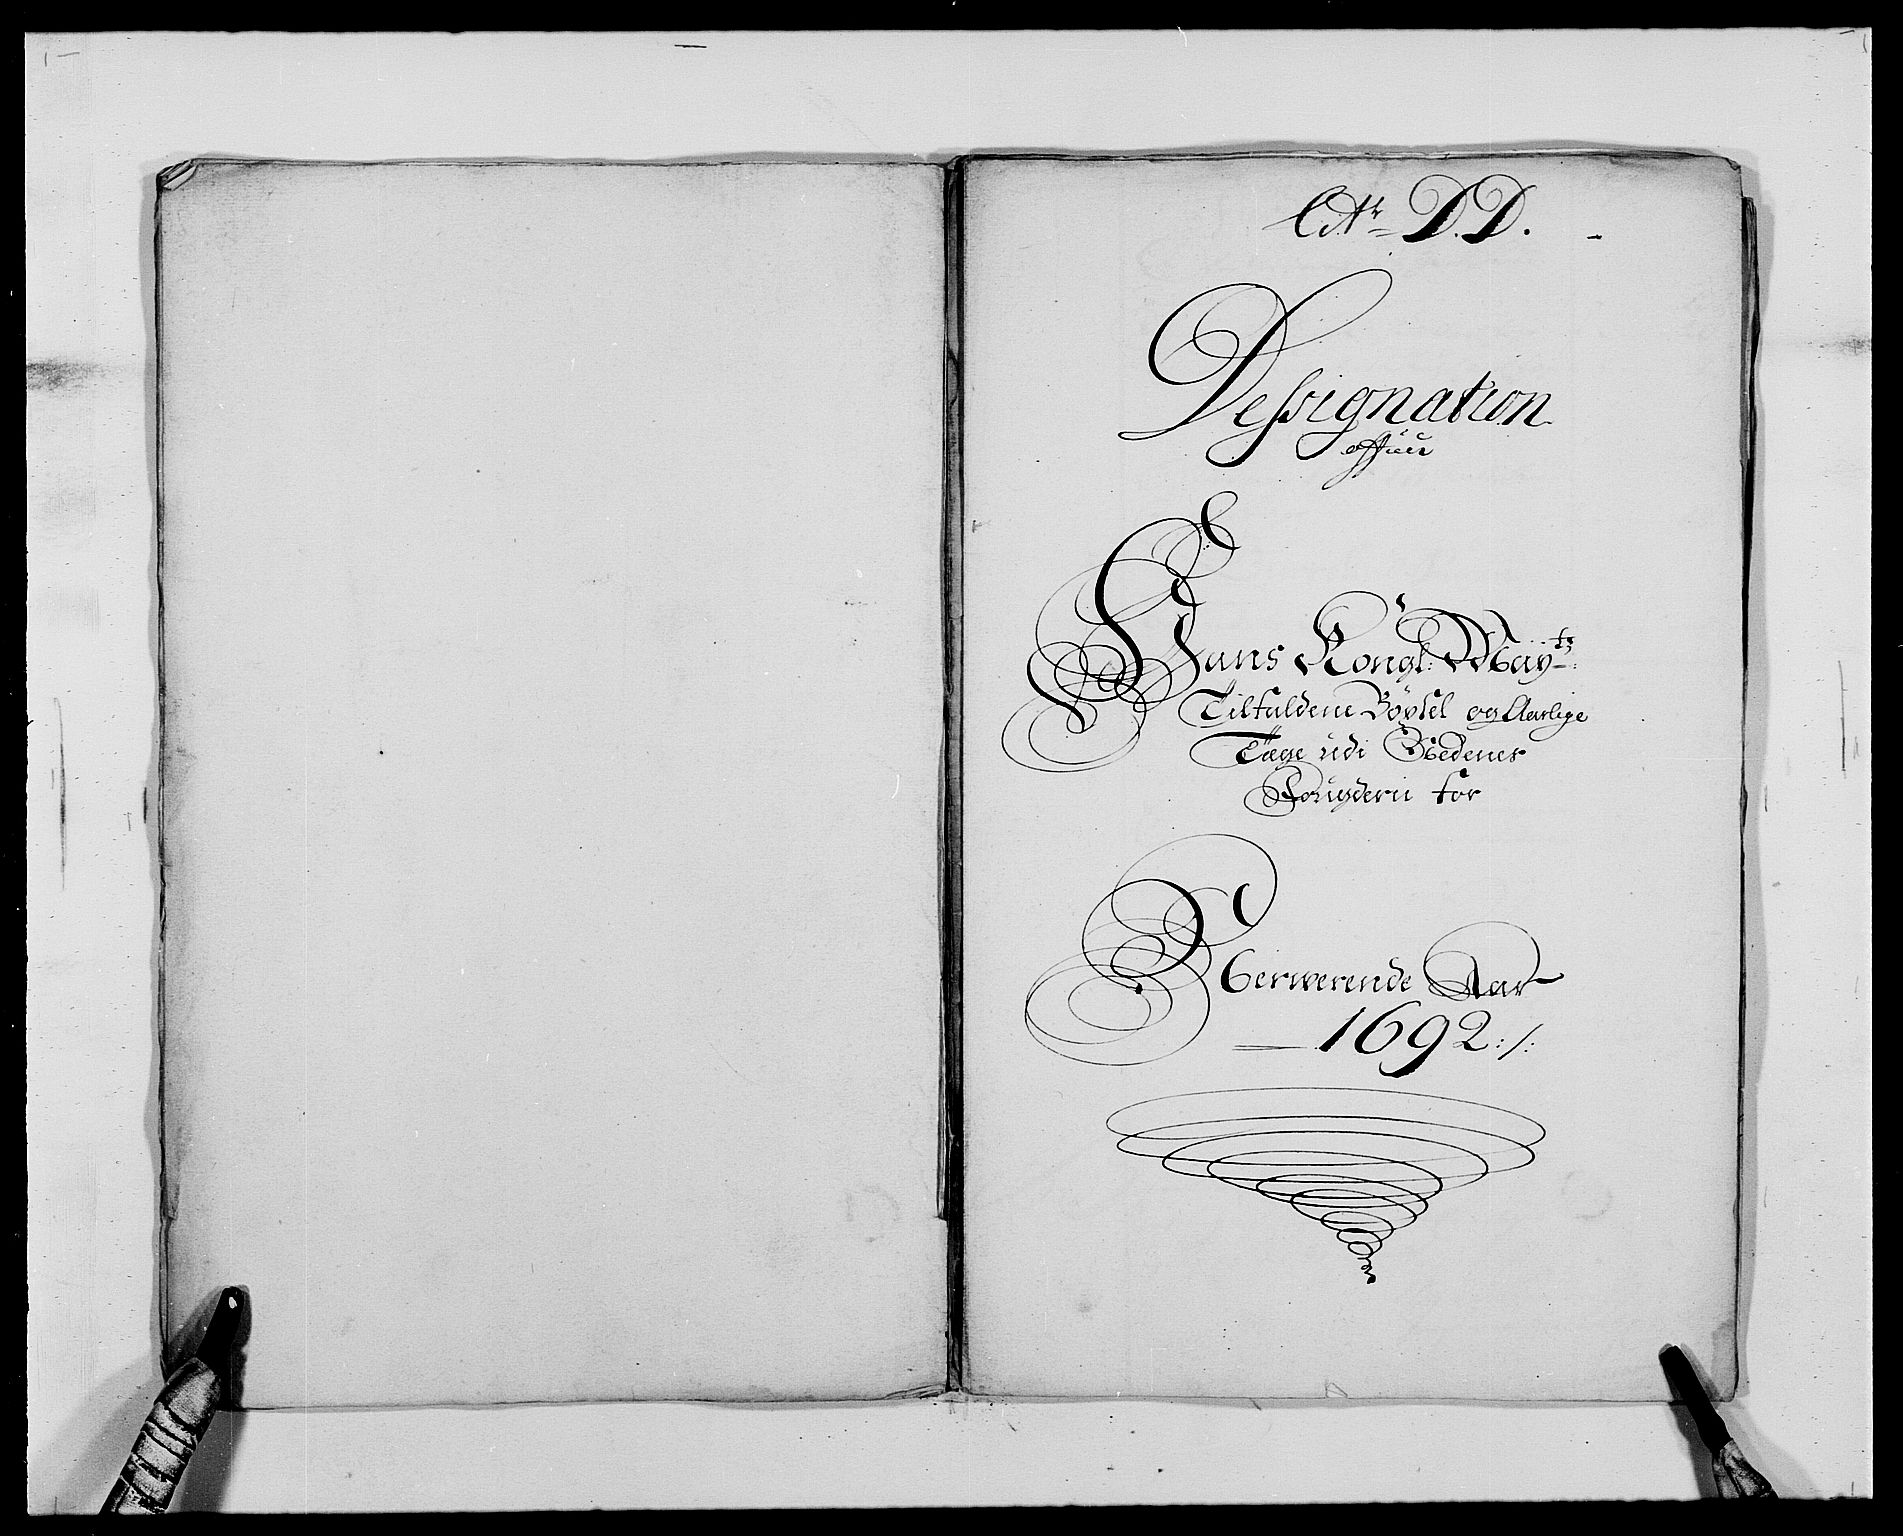 Litr D.D.
Dessignation
offuer
Hans Kongl: Maytz:
Tilfaldene Böxsel og Aarlige
Tæge udi Nedenes
Fougderii for
Nerwerende Aar
1692:/: